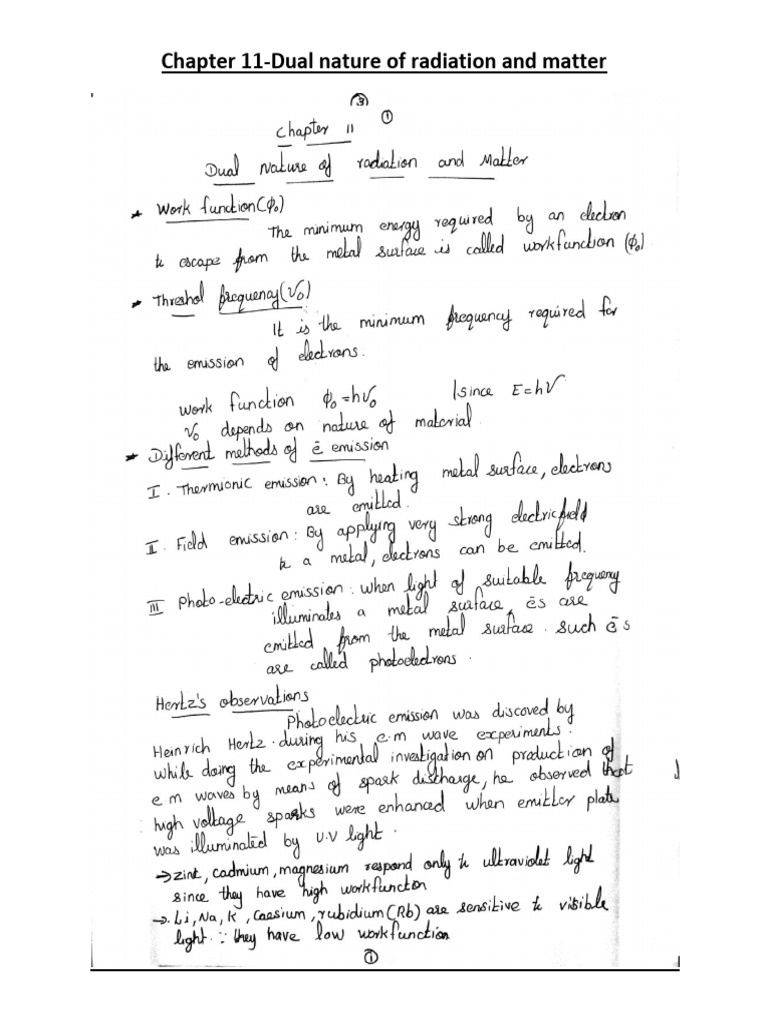 Chapter 11-Dual nature of radiation and matter
③
①
Chapter 11
Dual Nature of radiation and Matter
* Work function(ϕ₀)
The minimum energy required by an electron
to escape from the metal surface is called workfunction (ϕ₀)
* Threshol frequency(ν₀)
It is the minimum frequency required for
the emission of electrons.
work function ϕ₀=hν₀ |since E=hν
ν₀ depends on nature of material
* Different methods of ē emission
I. Thermionic emission: By heating metal surface, electrons
are emitted.
II. Field emission: By applying very strong electricfield
to a metal, electrons can be emitted.
III Photo-electric emission: when light of suitable frequency
illuminates a metal surface, ēs are
emitted from the metal surface. such ēs
are called photoelectrons.
Hertz's observations
Photoelectric emission was discoved by
Heinrich Hertz during his e.m wave experiments.
while doing the experimental investigation on production of
e m waves by means of spark discharge, he observed that
high voltage sparks were enhanced when emitter plate
was illuminated by U.V light.
→ zinc, cadmium, magnesium respond only to ultraviolet light
since they have high workfuncton
→. Li, Na, K, Caesium, rubidium(Rb) are sensitive to visible
light. ∵ they have low workfunction
①